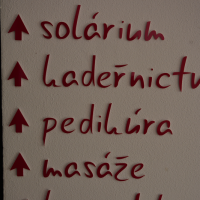 solárium
kadeřnictv
pedikúra
masáže